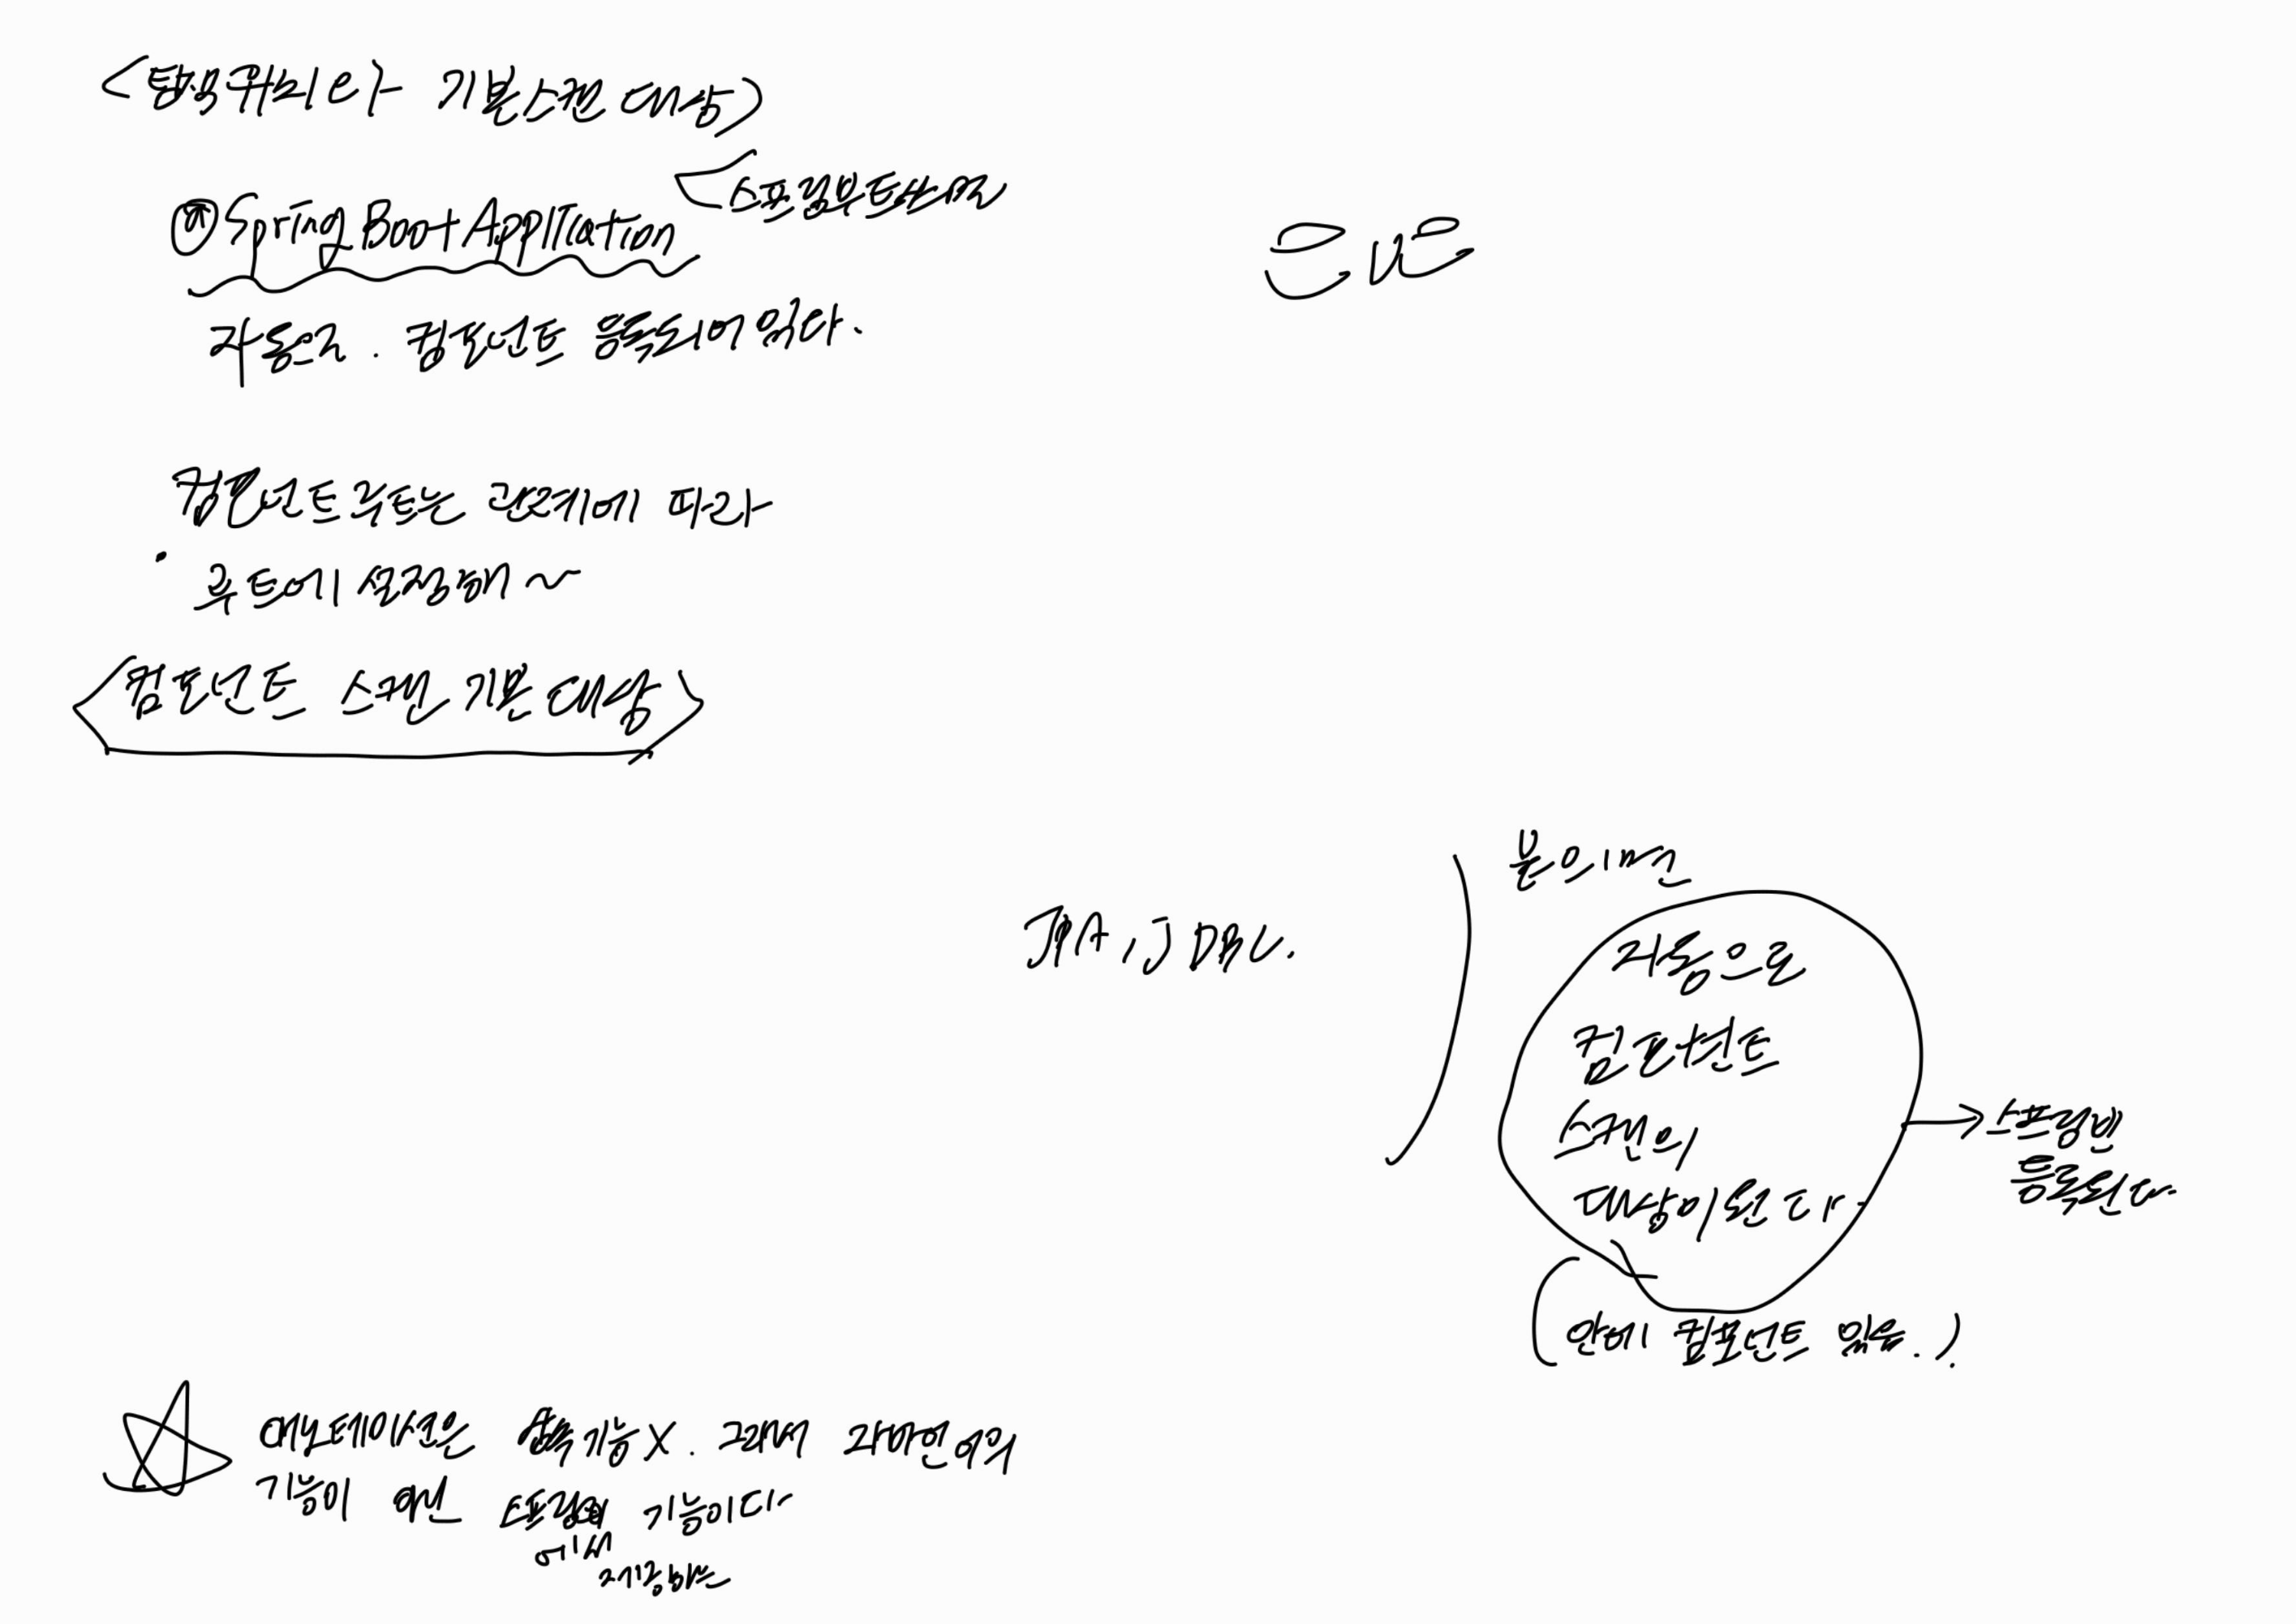 <탐색위치와 기본스캔 대상>
@SpringBootApplication <스프링부트
자동으로. 컴포넌트 등록되어 있다.
컴포넌트 루트는 관계에 따라
루트에 설정해~
<컴포넌트 스캔 기본 대상>
JPA, JDBC.
붙으면
자동으로
컴포넌트
스캔의
대상이 된다.
→ 스프링빈
등록된다.
(안에 컴포넌트 있음.)
☆ 애노테이션은 상속기능X. 그래서 자바언어의
기능이 아닌 스프링에서 기능이다
제공하는